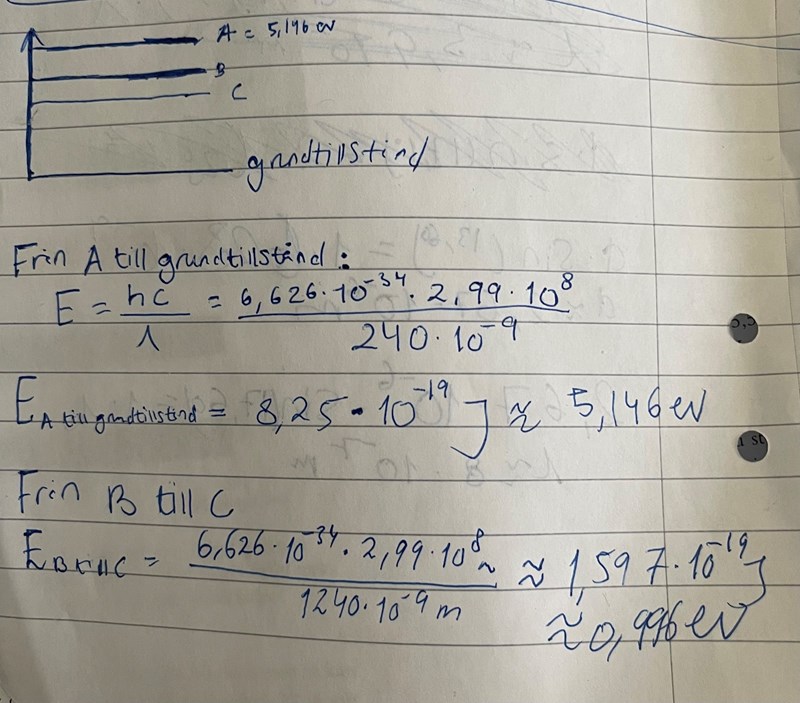 A = 5,146 eV
B
C
grundtillstånd
Från A till grundtillstånd:
E = hc/λ = 6,626·10⁻³⁴ · 2,99·10⁸ / 240·10⁻⁹
E A till grundtillstånd = 8,25·10⁻¹⁹ J ≈ 5,146 eV
Från B till C
E B till C = 6,626·10⁻³⁴ · 2,99·10⁸ / 1240·10⁻⁹ m ≈ 1,597·10⁻¹⁹ J
≈ 0,996 eV